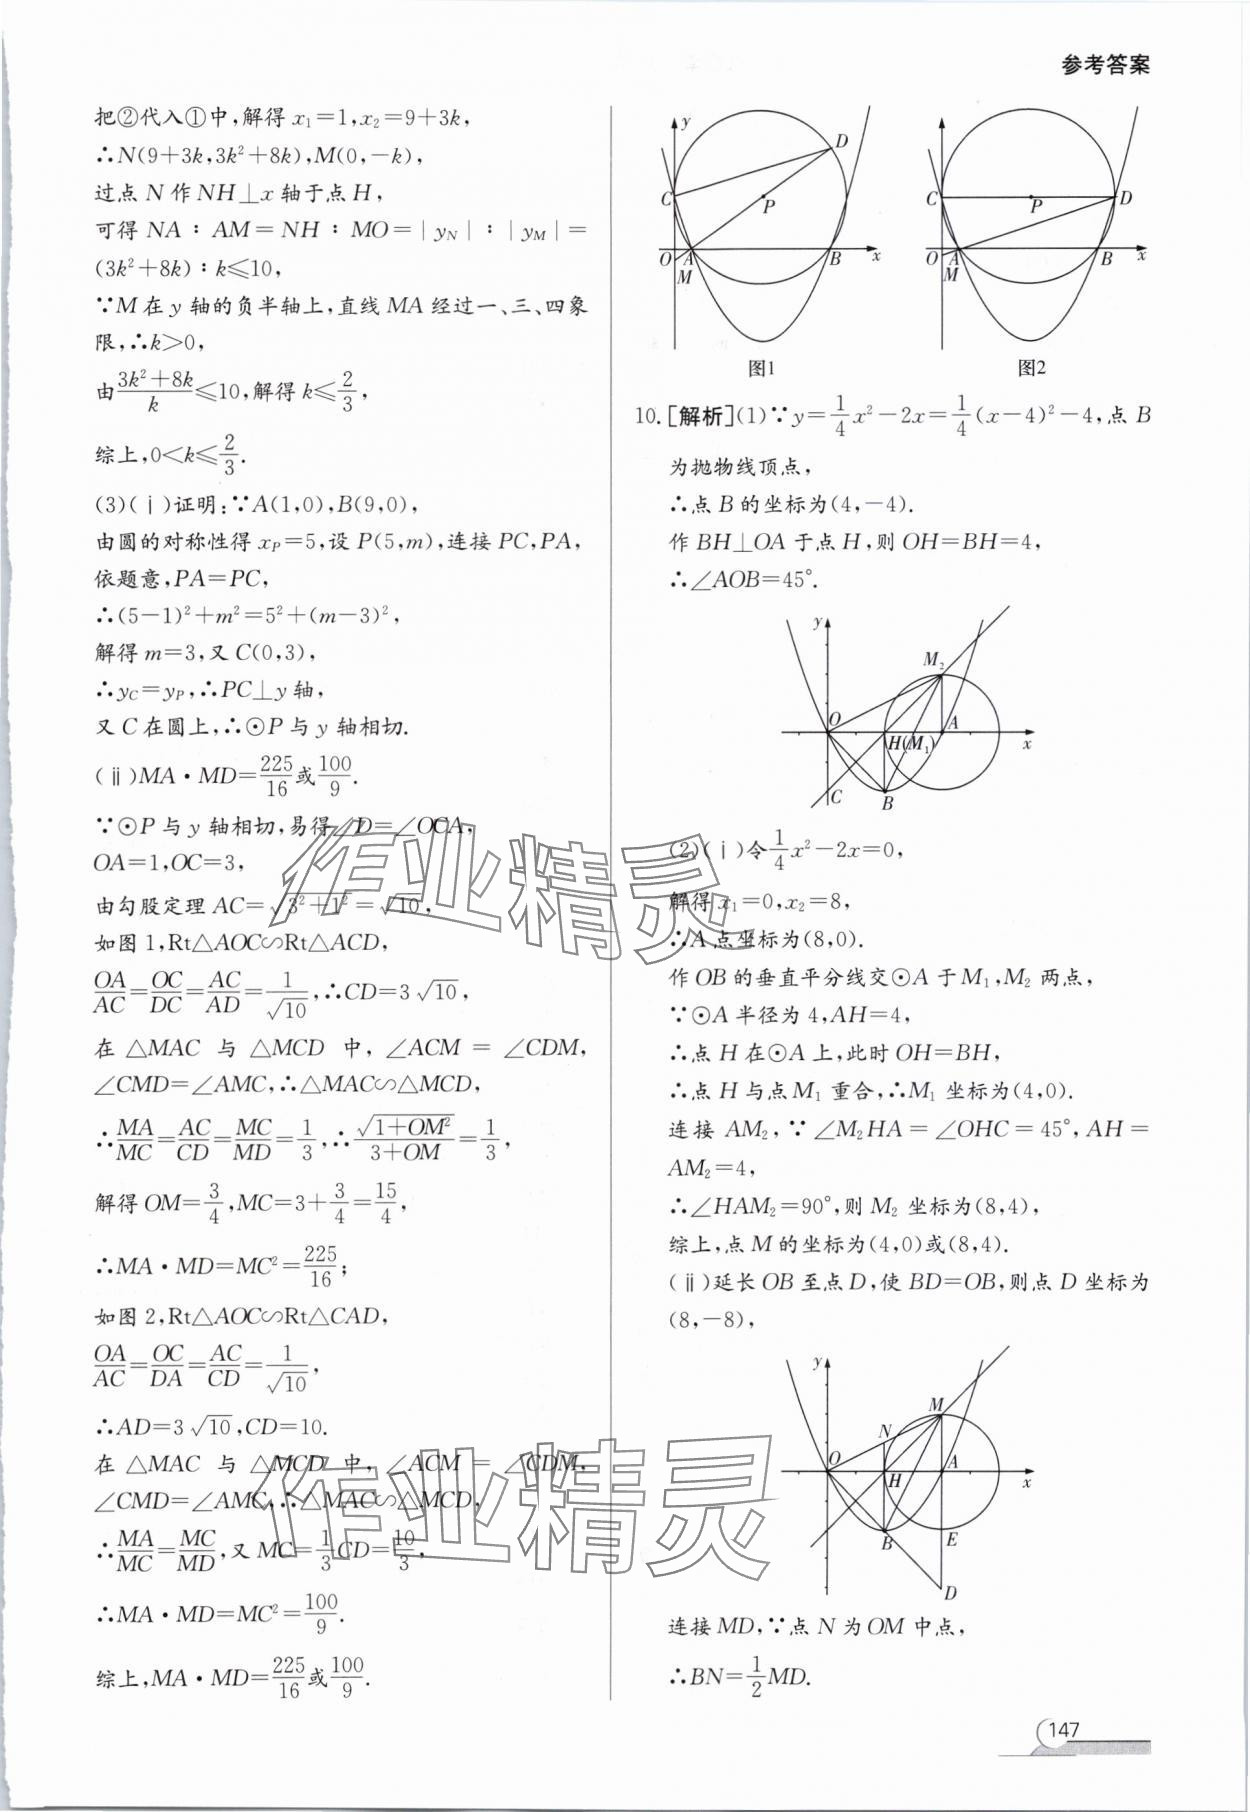 参考答案
把②代入①中,解得 x₁=1,x₂=9+3k,
∴N(9+3k,3k²+8k),M(0,-k),
过点 N 作 NH⊥x 轴于点 H,
可得 NA∶AM=NH∶MO=|y_N|∶|y_M|=
(3k²+8k)∶k≤10,
∵M 在 y 轴的负半轴上,直线 MA 经过一、三、四象
限,∴k>0,
由(3k²+8k)/k≤10,解得 k≤2/3,
综上,0<k≤2/3.
(3)(ⅰ)证明:∵A(1,0),B(9,0),
由圆的对称性得 x_P=5,设 P(5,m),连接 PC,PA,
依题意,PA=PC,
∴(5-1)²+m²=5²+(m-3)²,
解得 m=3,又 C(0,3),
∴y_C=y_P,∴PC⊥y 轴,
又 C 在圆上,∴⊙P 与 y 轴相切.
(ⅱ)MA·MD=225/16或100/9.
∵⊙P 与 y 轴相切,易得∠D=∠OCA,
OA=1,OC=3,
由勾股定理 AC=√(3²+1²)=√10,
如图 1,Rt△AOC∽Rt△ACD,
OA/AC=OC/DC=AC/AD=1/√10,∴CD=3√10,
在 △MAC 与 △MCD 中,∠ACM=∠CDM,
∠CMD=∠AMC,∴△MAC∽△MCD,
∴MA/MC=AC/CD=MC/MD=1/3,∴√(1+OM²)/(3+OM)=1/3,
解得 OM=3/4,MC=3+3/4=15/4,
∴MA·MD=MC²=225/16;
如图 2,Rt△AOC∽Rt△CAD,
OA/AC=OC/DA=AC/CD=1/√10,
∴AD=3√10,CD=10.
在 △MAC 与 △MCD 中,∠ACM=∠CDM,
∠CMD=∠AMC,∴△MAC∽△MCD,
∴MA/MC=MC/MD,又 MC=1/3CD=10/3,
∴MA·MD=MC²=100/9.
综上,MA·MD=225/16或100/9.
y
D
C
P
O
A
B
x
M
图1
y
C
P
D
O
A
B
x
M
图2
10.[解析](1)∵y=1/4x²-2x=1/4(x-4)²-4,点 B
为抛物线顶点,
∴点 B 的坐标为(4,-4).
作 BH⊥OA 于点 H,则 OH=BH=4,
∴∠AOB=45°.
y
M₂
O
A
H(M₁)
x
C
B
(2)(ⅰ)令1/4x²-2x=0,
解得 x₁=0,x₂=8,
∴A 点坐标为(8,0).
作 OB 的垂直平分线交⊙A 于 M₁,M₂ 两点,
∵⊙A 半径为 4,AH=4,
∴点 H 在⊙A 上,此时 OH=BH,
∴点 H 与点 M₁ 重合,∴M₁ 坐标为(4,0).
连接 AM₂,∵∠M₂HA=∠OHC=45°,AH=
AM₂=4,
∴∠HAM₂=90°,则 M₂ 坐标为(8,4),
综上,点 M 的坐标为(4,0)或(8,4).
(ⅱ)延长 OB 至点 D,使 BD=OB,则点 D 坐标为
(8,-8),
y
M
N
O
A
H
x
B
E
D
连接 MD,∵点 N 为 OM 中点,
∴BN=1/2MD.
147
作业精灵
作业精灵